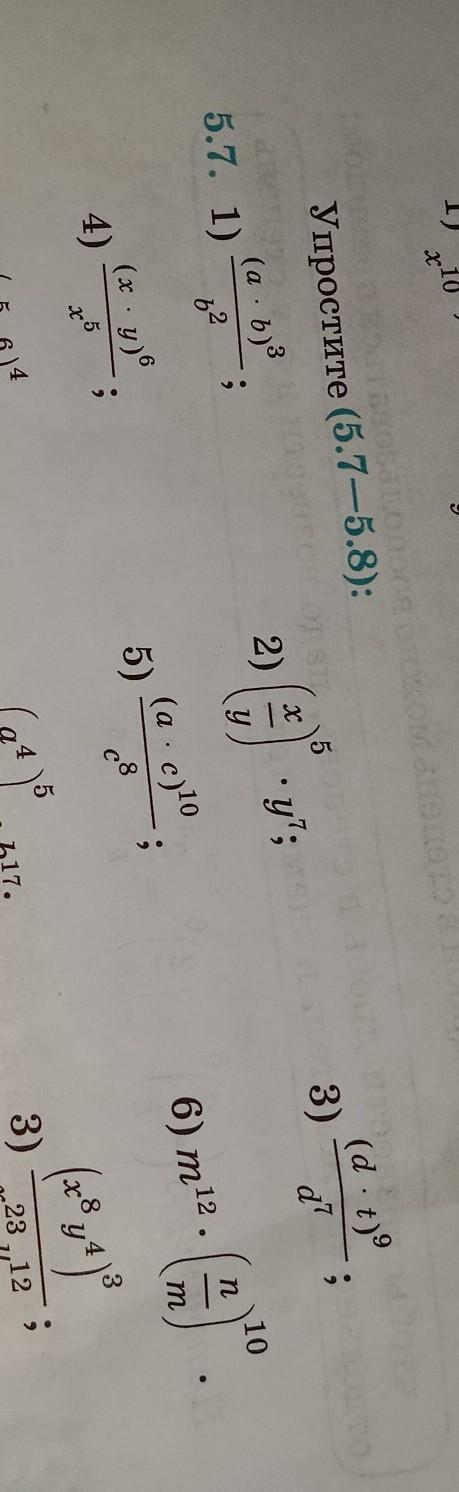 1) x¹⁰,
Упростите (5.7—5.8):
5.7. 1) \frac{(a · b)³}{b²}; 2) (\frac{x}{y})⁵ · y⁷; 3) \frac{(d · t)⁹}{d⁷};
4) \frac{(x · y)⁶}{x⁵}; 5) \frac{(a · c)¹⁰}{c⁸}; 6) m¹² · (\frac{n}{m})¹⁰.
3) \frac{(x⁸y⁴)³}{x²³y¹²};